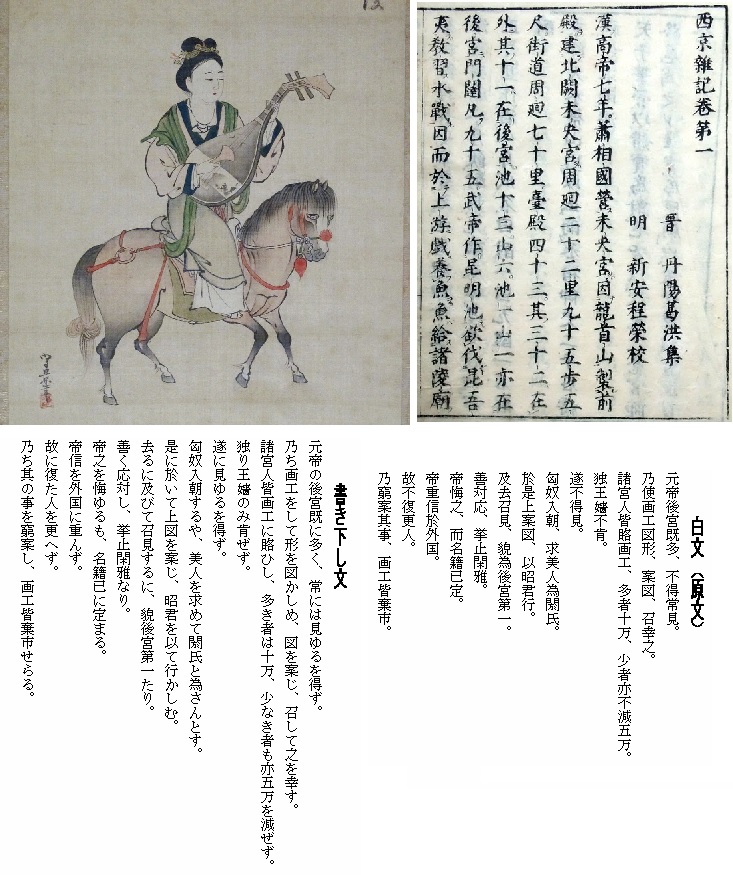 12
西京雜記卷第一
晋　丹陽葛洪集
明　新安程榮校
漢高帝七年蕭相國營未央宮因龍首山製前
殿建北闕未央宮周廻二十二里九十五步五
尺街道周廻七十里臺殿四十三其三十二在
外其十一在後宮池十三山六池一山一亦在
後宮門闥凡九十五武帝作昆明池欲伐昆吾
夷教習水戰因而於上游戲養魚魚給諸陵廟
白文（原文）
元帝後宮既多、不得常見。
乃使画工図形、案図、召幸之。
諸宮人皆賂画工、多者十万、少者亦不減五万。
独王嬙不肯。
遂不得見。
匈奴入朝、求美人為閼氏。
於是上案図、以昭君行。
及去召見、貌為後宮第一。
善対応、挙止閑雅。
帝悔之、而名籍已定。
帝重信於外国。
故不復更人。
乃窮案其事、画工皆棄市。
書き下し文
元帝の後宮既に多く、常には見ゆるを得ず。
乃ち画工をして形を図かしめ、図を案じ、召して之を幸す。
諸宮人皆画工に賂ひし、多き者は十万、少なき者も亦五万を減ぜず。
独り王嬙のみ肯ぜず。
遂に見ゆるを得ず。
匈奴入朝するや、美人を求めて閼氏と為さんとす。
是に於いて上図を案じ、昭君を以て行かしむ。
去るに及びて召見するに、貌後宮第一たり。
善く応対し、挙止閑雅なり。
帝之を悔ゆるも、名籍已に定まる。
帝信を外国に重んず。
故に復た人を更へず。
乃ち其の事を窮案し、画工皆棄市せらる。